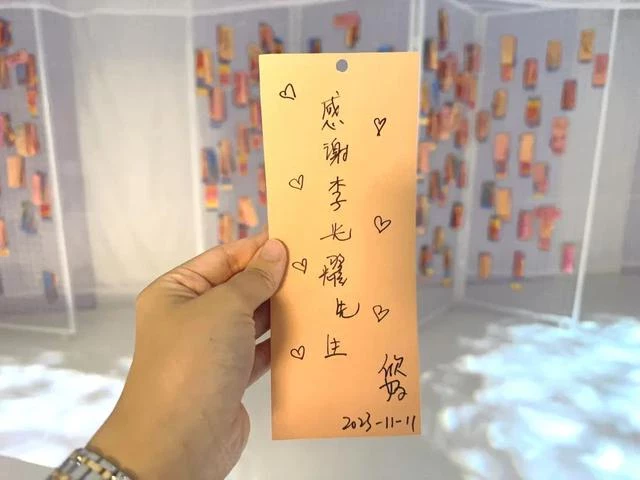 感谢李光耀先生
2023-11-11